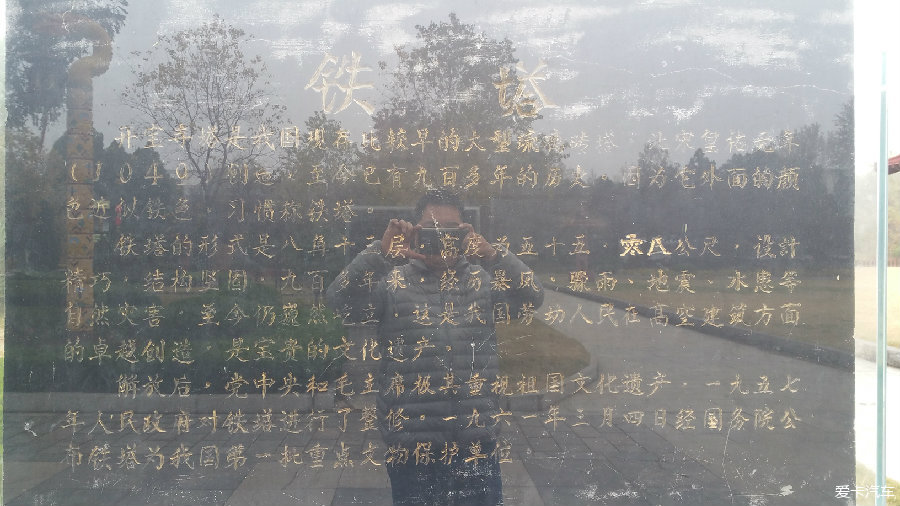 铁塔
开宝寺塔是我国现存比较早的大型琉璃砖塔，北宋皇祐元年
(1049)创建，至今已有九百多年的历史。因为它外面的颜
色近似铁色，习惯称铁塔。
铁塔的形式是八角十三层，高度为五十五·八八公尺，设計
精巧，结构坚固，九百多年来，经历暴风、骤雨、地震、水患等
自然灾害，至今仍巍然屹立，这是我国劳动人民在高空建筑方面
的卓越创造，是宝贵的文化遗产。
解放后，党中央和毛主席极其重视祖国文化遗产，一九五七
年人民政府对铁塔进行了整修。一九六一年三月四日经国务院公
布铁塔为我国第一批重点文物保护单位。
爱卡汽车